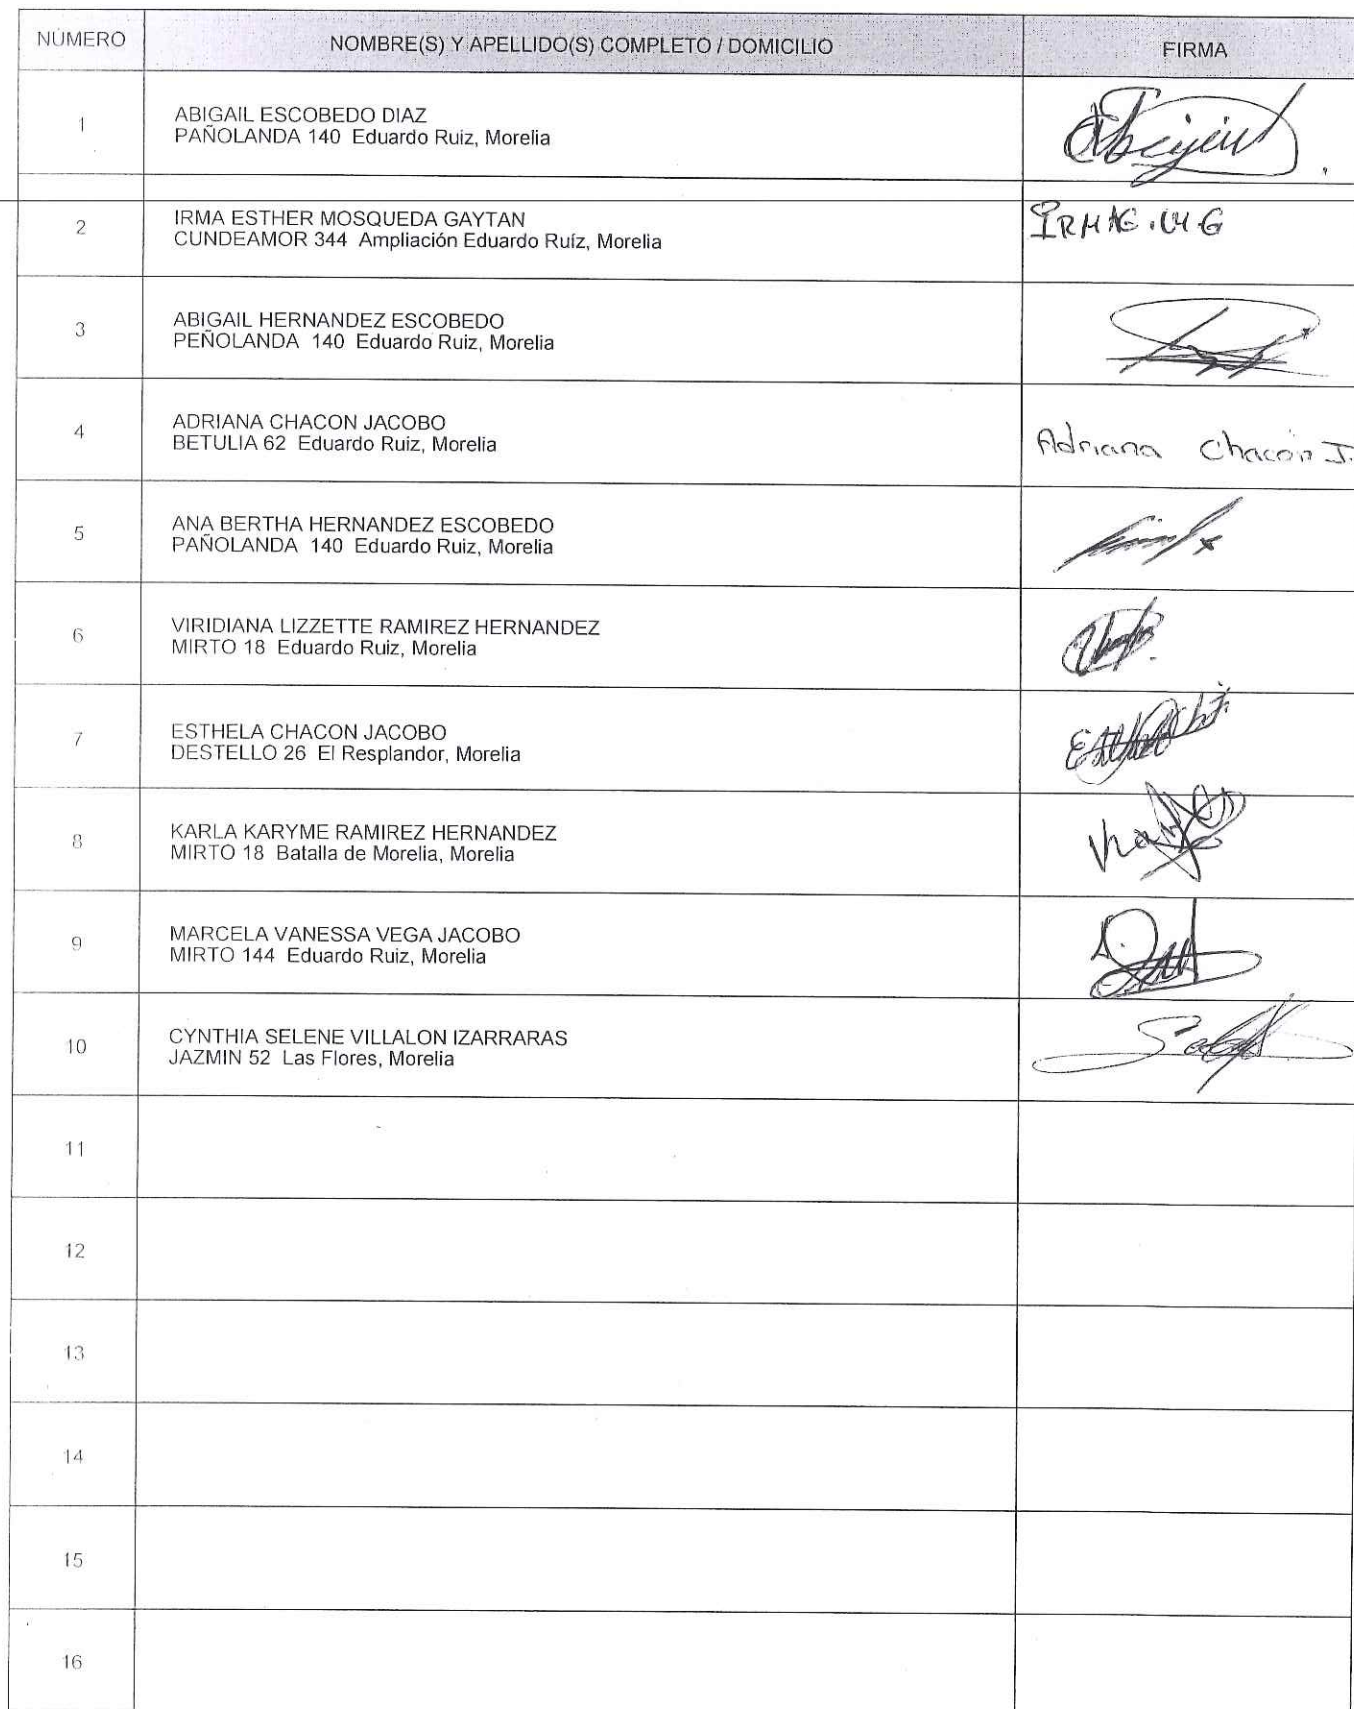 NÚMERO NOMBRE(S) Y APELLIDO(S) COMPLETO / DOMICILIO FIRMA
1 ABIGAIL ESCOBEDO DIAZ
PAÑOLANDA 140 Eduardo Ruiz, Morelia
2 IRMA ESTHER MOSQUEDA GAYTAN
CUNDEAMOR 344 Ampliación Eduardo Ruíz, Morelia
3 ABIGAIL HERNANDEZ ESCOBEDO
PEÑOLANDA 140 Eduardo Ruiz, Morelia
4 ADRIANA CHACON JACOBO
BETULIA 62 Eduardo Ruiz, Morelia
Adriana Chacón J.
5 ANA BERTHA HERNANDEZ ESCOBEDO
PAÑOLANDA 140 Eduardo Ruiz, Morelia
6 VIRIDIANA LIZZETTE RAMIREZ HERNANDEZ
MIRTO 18 Eduardo Ruiz, Morelia
7 ESTHELA CHACON JACOBO
DESTELLO 26 El Resplandor, Morelia
8 KARLA KARYME RAMIREZ HERNANDEZ
MIRTO 18 Batalla de Morelia, Morelia
9 MARCELA VANESSA VEGA JACOBO
MIRTO 144 Eduardo Ruiz, Morelia
10 CYNTHIA SELENE VILLALON IZARRARAS
JAZMIN 52 Las Flores, Morelia
11
12
13
14
15
16